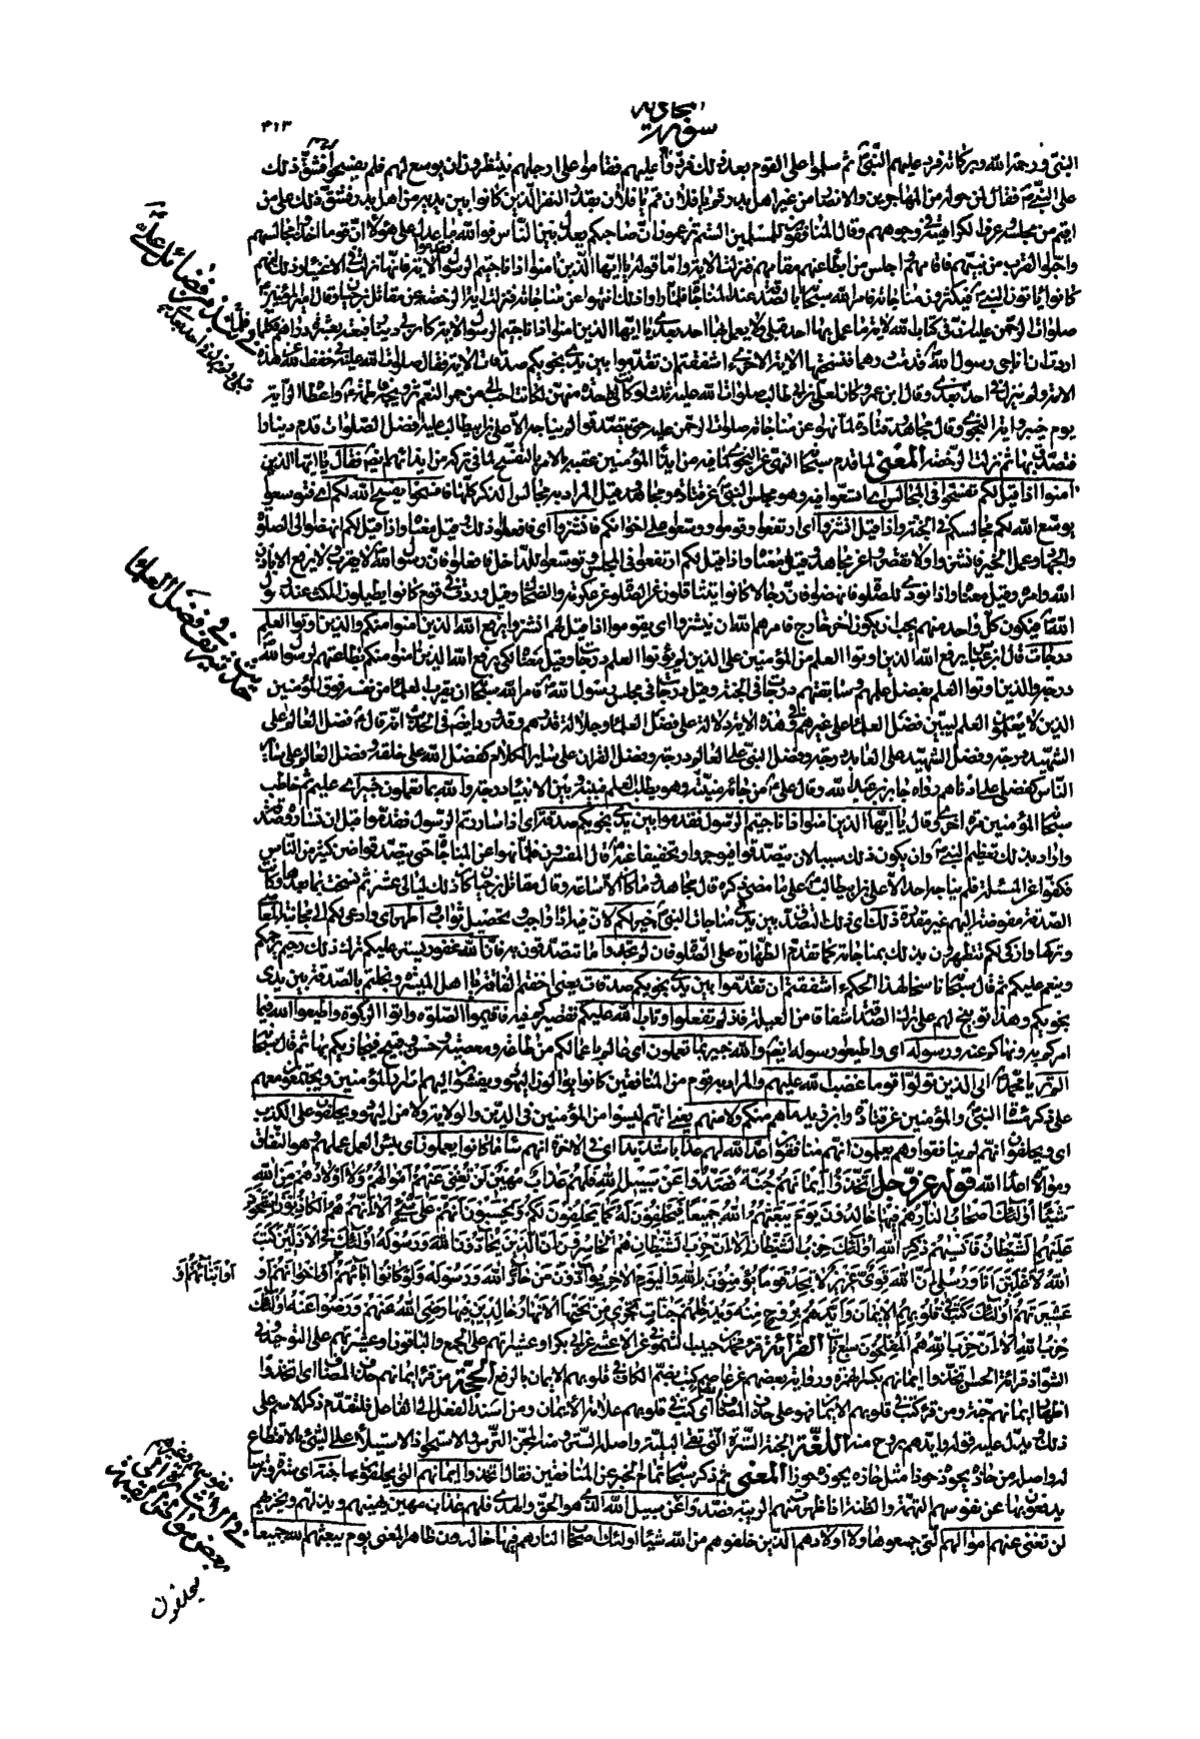 سورة
المجادلة
٤١٣
النبي ورحمة الله وبركاته فرد عليهم النبي ثم سلموا على القوم بعد ذلك فردوا عليهم فقاموا على ارجلهم ينتظرون ان يوسع لهم فلم يفسحوا فشق ذلك
على النبي فقال لمن حوله من المهاجرين والانصار من غير اهل بدر قم يا فلان قم يا فلان بقدر النفر الذين كانوا بين يديه من اهل بدر فشق ذلك على من
اقيم من مجلسه وعرف الكراهية في وجوههم وقال المنافقون للمسلمين الستم تزعمون ان صاحبكم يعدل بين الناس فوالله ما عدل على هؤلاء ان قوما اخذوا مجالسهم
واحبوا القرب من نبيهم فاقامهم واجلس من ابطأ عنهم مقامهم فنزلت الاية واما قوله يا ايها الذين امنوا اذا ناجيتم الرسول الاية فانها نزلت في الاغنياء وذلك انهم
كانوا ياتون النبي فيكثرون مناجاته فامر الله سبحانه بالصدقة عند المناجاة فلما راوا ذلك انتهوا عن مناجاته فنزلت اية الرخصة عن مقاتل بن حيان وقال امير المؤمنين
صلوات الرحمن عليه ان في كتاب الله لاية ما عمل بها احد قبلي ولا يعمل بها احد بعدي يا ايها الذين امنوا اذا ناجيتم الرسول الاية كان لي دينار فبعته بعشرة دراهم فكلما
اردت ان اناجي رسول الله قدمت درهما فنسختها الاية الاخرى ءاشفقتم ان تقدموا بين يدي نجويكم صدقات الاية فقال صلوات الله عليه بي خفف الله عن هذه
الامة ولم ينزل في احد بعدي وقال ابن عمر كان لعلي بن ابي طالب صلوات الله عليه ثلث لو كان لي واحدة منهن لكانت احب الي من حمر النعم تزويجه فاطمة واعطاؤه الراية
يوم خيبر واية النجوى وقال مجاهد وقتادة لما نهوا عن مناجاته صلوات الرحمن عليه حتى يتصدقوا لم يناجه الا علي بن ابيطالب عليه افضل الصلوات قدم دينارا
فتصدق بها ثم نزلت الرخصة المعنى لما قدم سبحانه النهي عن النجوى لما فيه من ايذاء المؤمنين عقبه بالامر بالتفسح لما في تركه من ايذائهم ايضا فقال يا ايها الذين
امنوا اذا قيل لكم تفسحوا في المجالس اي اتسعوا فيه وهو مجلس النبي عن قتادة ومجاهد وقيل المراد به مجالس الذكر كلها فافسحوا يفسح الله لكم اي فتوسعوا
يوسع الله لكم مجالسكم في الجنة واذا قيل انشزوا فانشزوا اي ارتفعوا وقوموا ووسعوا على اخوانكم فانشزوا اي فافعلوا ذلك وقيل معناه واذا قيل لكم انهضوا الى الصلوة
والجهاد وعمل الخير فانشزوا ولا تقصروا عن مجاهد وقيل معناه واذا قيل لكم ارتفعوا في المجلس وتوسعوا للداخل فافعلوا
درجات قال ابن عباس يرفع الله الذين اوتوا العلم من المؤمنين على الذين لم يؤتوا العلم درجات وقيل معناه لكي يرفع الله الذين امنوا منكم بطاعتهم لرسول الله
درجة والذين اوتوا العلم بفضل علمهم وسابقتهم درجات في الجنة وقيل درجات في مجلس رسول الله فامر الله سبحانه ان يقرب العلماء من نفسه فوق المؤمنين
الذين لا يعلمون العلم ليبين فضل العلماء على غيرهم وفي هذه الاية دلالة على فضل العلماء وجلالة قدرهم وقد ورد ايضا في الحديث انه قال فضل العالم على
الشهيد درجة وفضل الشهيد على العابد درجة وفضل النبي على العالم درجة وفضل القران على سائر الكلام كفضل الله على خلقه وفضل العالم على سائر
الناس كفضلي على ادناهم رواه جابر بن عبد الله وقال علي من جائته منيته وهو يطلب العلم فبينه وبين الانبياء درجة والله بما تعملون خبير اي عليم ثم خاطب
سبحانه المؤمنين مرة اخرى وقال يا ايها الذين امنوا اذا ناجيتم الرسول فقدموا بين يدي نجويكم صدقة اي اذا ساررتم الرسول فقدموا قبل ان تساروه صدقة
واراد بذلك تعظيم النبي وان يكون ذلك سببا لان يتصدقوا فيوجروا وتخفيفا عنه قال المفسرون فلما نهوا عن المناجاة حتى يتصدقوا ضن كثير من الناس
فكفوا عن المسئلة فلم يناجه احد الا علي بن ابيطالب على ما مضى ذكره قال مجاهد وما كان الا ساعة وقال مقاتل بن حيان كان ذلك ليالي عشر ثم نسخت بما بعدها وكانت
الصدقة مفوضة اليهم غير مقدرة ذلك اي ذلك التصدق بين يدي مناجات النبي خير لكم لان فيه اداء واجب وتحصيل ثواب واطهر اي وادعى لكم الى مجانبة المعاصي
وتركها وازكى لكم تتطهرون بذلك بمناجاته كما تقدم الطهارة على الصلوة فان لم تجدوا ما تتصدقون به فان الله غفور يستر عليكم ترك ذلك رحيم يرحمكم
وينعم عليكم ثم قال سبحانه ناسخا لهذا الحكم ءاشفقتم ان تقدموا بين يدي نجويكم صدقات يعني اخفتم الفاقة يا اهل الميسرة وبخلتم بالصدقة بين يدي
نجويكم وهذا توبيخ لهم على ترك الصدقة اشفاقا من العيلة فاذ لم تفعلوا وتاب الله عليكم تقصيركم فيه فاقيموا الصلوة واتوا الزكوة واطيعوا الله فيما
امركم به ونهاكم عنه ورسوله اي واطيعوا رسوله ايضا والله خبير بما تعملون اي عالم باعمالكم من طاعة ومعصية وحسن وقبيح فيجازيكم بها ثم قال سبحانه
الم تر يا محمد الى الذين تولوا قوما غضب الله عليهم والمراد به قوم من المنافقين كانوا يوالون اليهود ويفشون اليهم اسرار المؤمنين ويجتمعون معهم
على ذكر مساءة النبي والمؤمنين عن قتادة وابن زيد ما هم منكم ولا منهم يعني انهم ليسوا من المؤمنين في الدين والولاية ولا من اليهود ويحلفون على الكذب
اي ويحلفون انهم لم ينافقوا وهم يعلمون انهم منافقون اعد الله لهم عذابا شديدا اي في الاخرة انهم ساء ما كانوا يعملون اي بئس العمل عملهم وهو النفاق
وموالاة اعداء الله قوله عز وجل اِتَّخَذُوا اَيْمَانَهُمْ جُنَّةً فَصَدُّوا عَنْ سَبِيلِ اللهِ فَلَهُمْ عَذَابٌ مُهِينٌ لَنْ تُغْنِيَ عَنْهُمْ اَمْوَالُهُمْ وَلَا اَوْلَادُهُمْ مِنَ اللهِ
شَيْئًا اُولَئِكَ اَصْحَابُ النَّارِ هُمْ فِيهَا خَالِدُونَ يَوْمَ يَبْعَثُهُمُ اللهُ جَمِيعًا فَيَحْلِفُونَ لَهُ كَمَا يَحْلِفُونَ لَكُمْ وَيَحْسَبُونَ اَنَّهُمْ عَلَى شَيْءٍ اَلَا اِنَّهُمْ هُمُ الْكَاذِبُونَ اسْتَحْوَذَ
عَلَيْهِمُ الشَّيْطَانُ فَاَنْسَاهُمْ ذِكْرَ اللهِ اُولَئِكَ حِزْبُ الشَّيْطَانِ اَلَا اِنَّ حِزْبَ الشَّيْطَانِ هُمُ الْخَاسِرُونَ اِنَّ الَّذِينَ يُحَادُّونَ اللهَ وَرَسُولَهُ اُولَئِكَ فِي الْاَذَلِّينَ كَتَبَ
اللهُ لَاَغْلِبَنَّ اَنَا وَرُسُلِي اِنَّ اللهَ قَوِيٌّ عَزِيزٌ لَا تَجِدُ قَوْمًا يُؤْمِنُونَ بِاللهِ وَالْيَوْمِ الْاٰخِرِ يُوَادُّونَ مَنْ حَادَّ اللهَ وَرَسُولَهُ وَلَوْ كَانُوا اٰبَاءَهُمْ اَوْ اِخْوَانَهُمْ اَوْ
اَوْ اَبْنَاءَهُمْ اَوْ
عَشِيرَتَهُمْ اُولَئِكَ كَتَبَ فِي قُلُوبِهِمُ الْاِيمَانَ وَاَيَّدَهُمْ بِرُوحٍ مِنْهُ وَيُدْخِلُهُمْ جَنَّاتٍ تَجْرِي مِنْ تَحْتِهَا الْاَنْهَارُ خَالِدِينَ فِيهَا رَضِيَ اللهُ عَنْهُمْ وَرَضُوا عَنْهُ اُولَئِكَ
حِزْبُ اللهِ اَلَا اِنَّ حِزْبَ اللهِ هُمُ الْمُفْلِحُونَ سبع ايات القرائة قرء محمد بن حبيب الشموني عن الاعشى عن ابي بكر او عشيراتهم على الجمع والباقون او عشيرتهم على التوحيد وفي
الشواذ قرائة الحسن اتخذوا ايمانهم بكسر الهمزة ورواية بعضهم عن عاصم كتب بضم الكاف في قلوبهم الايمان بالرفع الحجة من قرء ايمانهم حذف المضاف اي اتخذوا
اظهار ايمانهم جنة ومن قرء كتب في قلوبهم الايمان فهو على حذف المضاف اي كتب في قلوبهم علامة الايمان ومن اسند الفعل الى الفاعل فلتقدم ذكر الاسم على
ذلك ويدل عليه قوله وايدهم بروح منه اللغة الجنة السترة التي تقي البلية واصله الستر ومنه المجن الترس والاستحواذ الاستيلاء على الشيء بالاقتطاع
له واصله من حاذه يحوذه حوذا مثل حازه يحوزه حوزا المعنى ثم ذكر سبحانه تمام الخبر عن المنافقين فقال اتخذوا ايمانهم التي يحلفون بها جنة اي سترة وترسا
يدفعون بها عن نفوسهم التهمة والظنة اذا ظهرت منهم الريبة فصدوا عن سبيل الله الذي هو الحق والهدى فلهم عذاب مهين يهينهم ويذلهم ويخزيهم
لن تغني عنهم اموالهم التي جمعوها ولا اولادهم الذين خلفوهم من الله شيئا اولئك اصحاب النار هم فيها خالدون ظاهر المعنى يوم يبعثهم الله جميعا
يحلفون